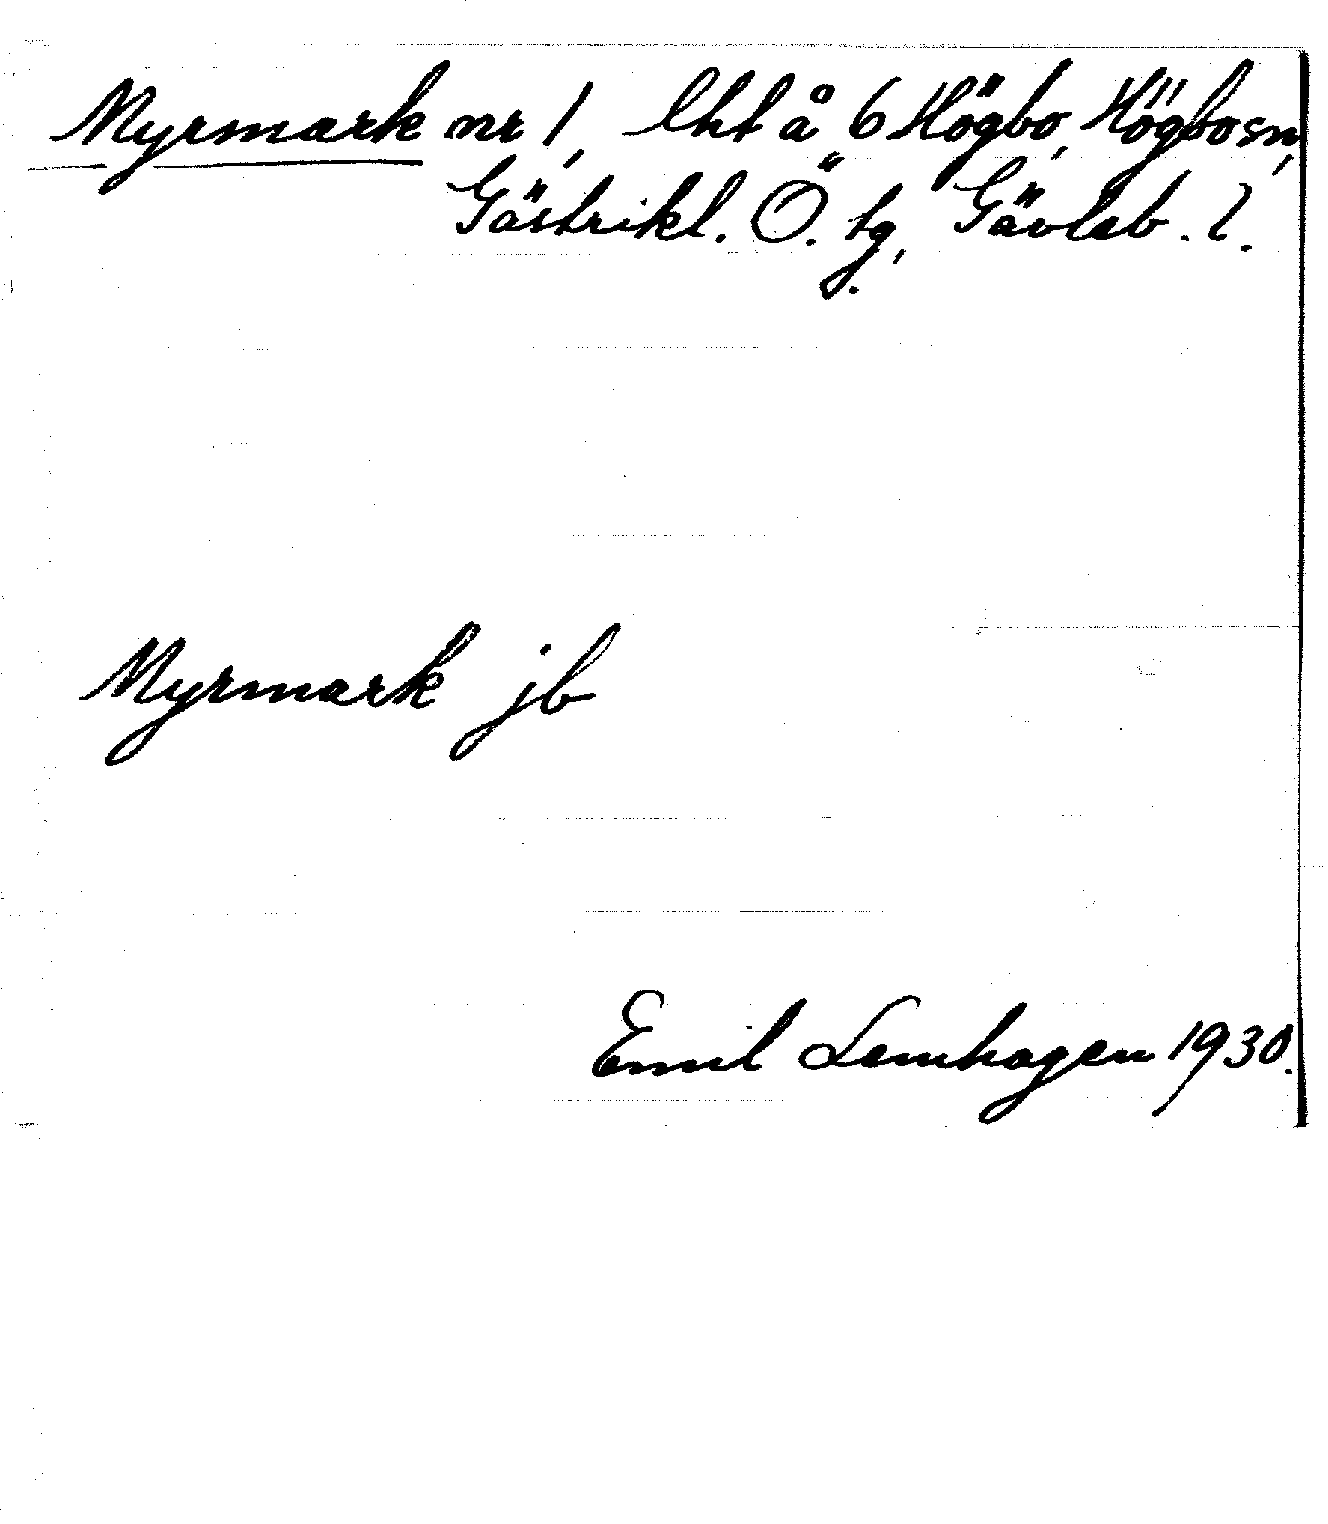 Myrmark nr 1, lht å 6 Högbo, Högbo sn,
Gästrikl. Ö. tg, Gävleb. l.
Myrmark jb
Emil Lemhagen 1930.